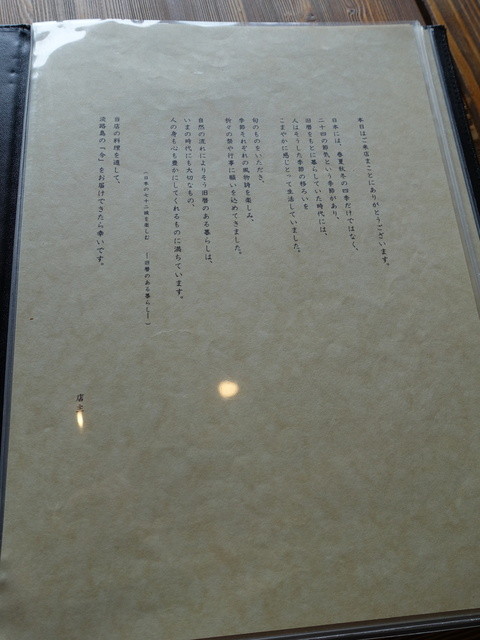 本日はご来店まことにありがとうございます。
日本には、春夏秋冬の四季だけではなく、
二十四の節気という季節があり、
旧暦をもとに暮らしていた時代には、
人はそうした季節の移ろいを
こまやかに感じとって生活していました。
旬のものをいただき、
季節それぞれの風物詩を楽しみ、
折々の祭や行事に願いを込めてきました。
自然の流れによりそう旧暦のある暮らしは、
いまの時代にも大切なもの、
人の身も心も豊かにしてくれるものに満ちています。
(日本の七十二候を楽しむ ー旧暦のある暮らしー)
当店の料理を通して、
淡路島の「今」をお届けできたら幸いです。
店主